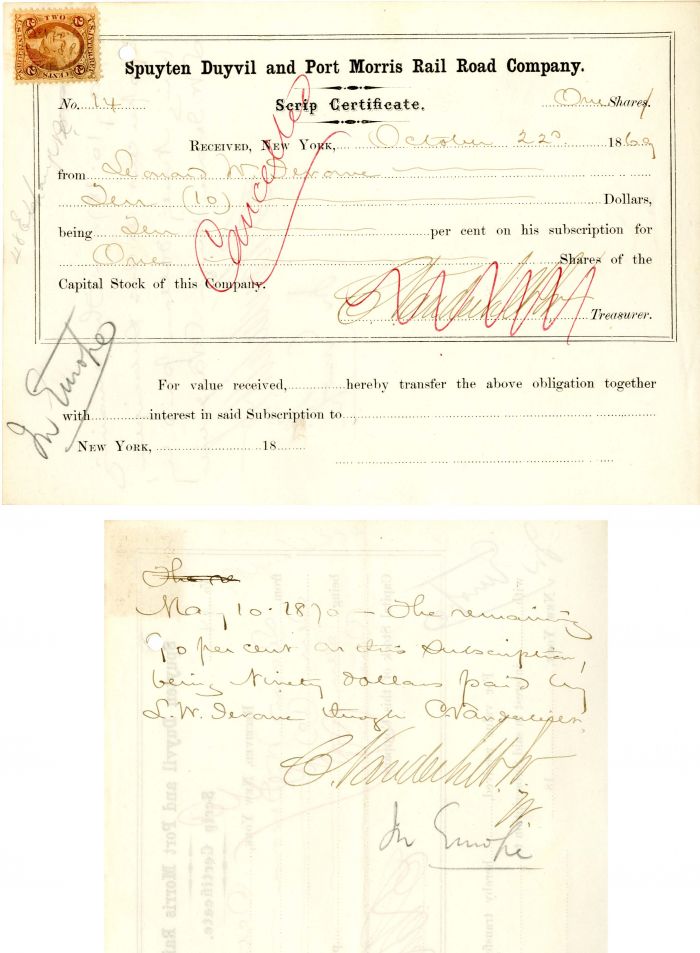 TWO
Spuyten Duyvil and Port Morris Rail Road Company.
No. 14
Scrip Certificate.
One Share
RECEIVED, NEW YORK, October 22d 1869
from Leonard W. Jerome
Ten (10) Dollars,
being Ten per cent on his subscription for
One Shares of the
Capital Stock of this Company.
Cancelled
C. Vanderbilt Jr
Treasurer.
In Europe
For value received, hereby transfer the above obligation together
with interest in said Subscription to
NEW YORK, 18
The
May 10. 1870 — The remaining
90 per cent on this Subscription,
being Ninety Dollars paid by
L. W. Jerome through C. Vanderbilt
C. Vanderbilt Jr
Tr.
In Europe